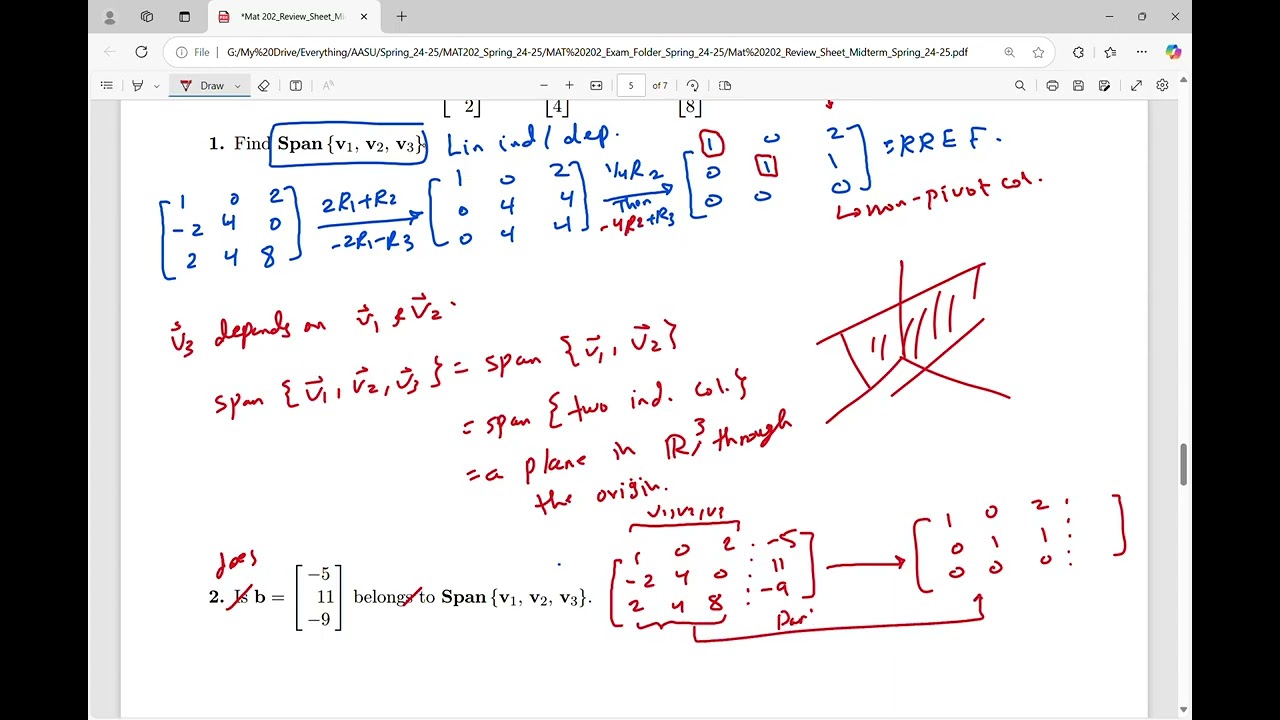 *Mat 202_Review_Sheet_Mi
File G:/My%20Drive/Everything/AASU/Spring_24-25/MAT202_Spring_24-25/MAT%20202_Exam_Folder_Spring_24-25/Mat%20202_Review_Sheet_Midterm_Spring_24-25.pdf
Draw
5 of 7
2] [4] [8]
1. Find Span {v₁, v₂, v₃}. Lin ind/dep.
[1 0 2
-2 4 0
2 4 8]
2R1+R2
-2R1-R3
[1 0 2
0 4 4
0 4 4]
1/4R2
Then
-4R2+R3
[1 0 2
0 1 1
0 0 0]
= RREF.
↳ non-pivot col.
v⃗3 depends on v⃗1 & v⃗2.
span {v⃗1, v⃗2, v⃗3} = span {v⃗1, v⃗2}
= span {two ind. col.}
= a plane in ℝ³, through
the origin.
v1, v2, v3
does
2. Is b = [-5
11
-9] belongs to Span {v₁, v₂, v₃}.
[1 0 2 : -5
-2 4 0 : 11
2 4 8 : -9]
[1 0 2 :
0 1 1 :
0 0 0 : ]